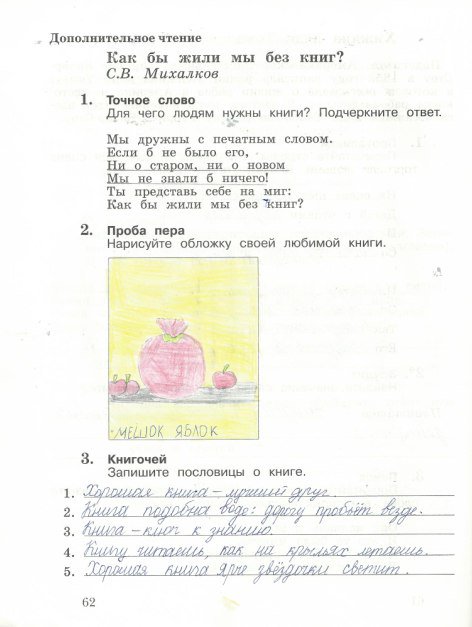 Дополнительное чтение
Как бы жили мы без книг?
С.В. Михалков
1. Точное слово
Для чего людям нужны книги? Подчеркните ответ.
Мы дружны с печатным словом.
Если б не было его,
Ни о старом, ни о новом
Мы не знали б ничего!
Ты представь себе на миг:
Как бы жили мы без книг?
2. Проба пера
Нарисуйте обложку своей любимой книги.
МЕШОК ЯБЛОК
3. Книгочей
Запишите пословицы о книге.
1. Хорошая книга – лучший друг.
2. Книга подобна воде: дорогу пробьёт везде.
3. Книга – ключ к знанию.
4. Книгу читаешь, как на крыльях летаешь.
5. Хорошая книга ярче звёздочки светит.
62